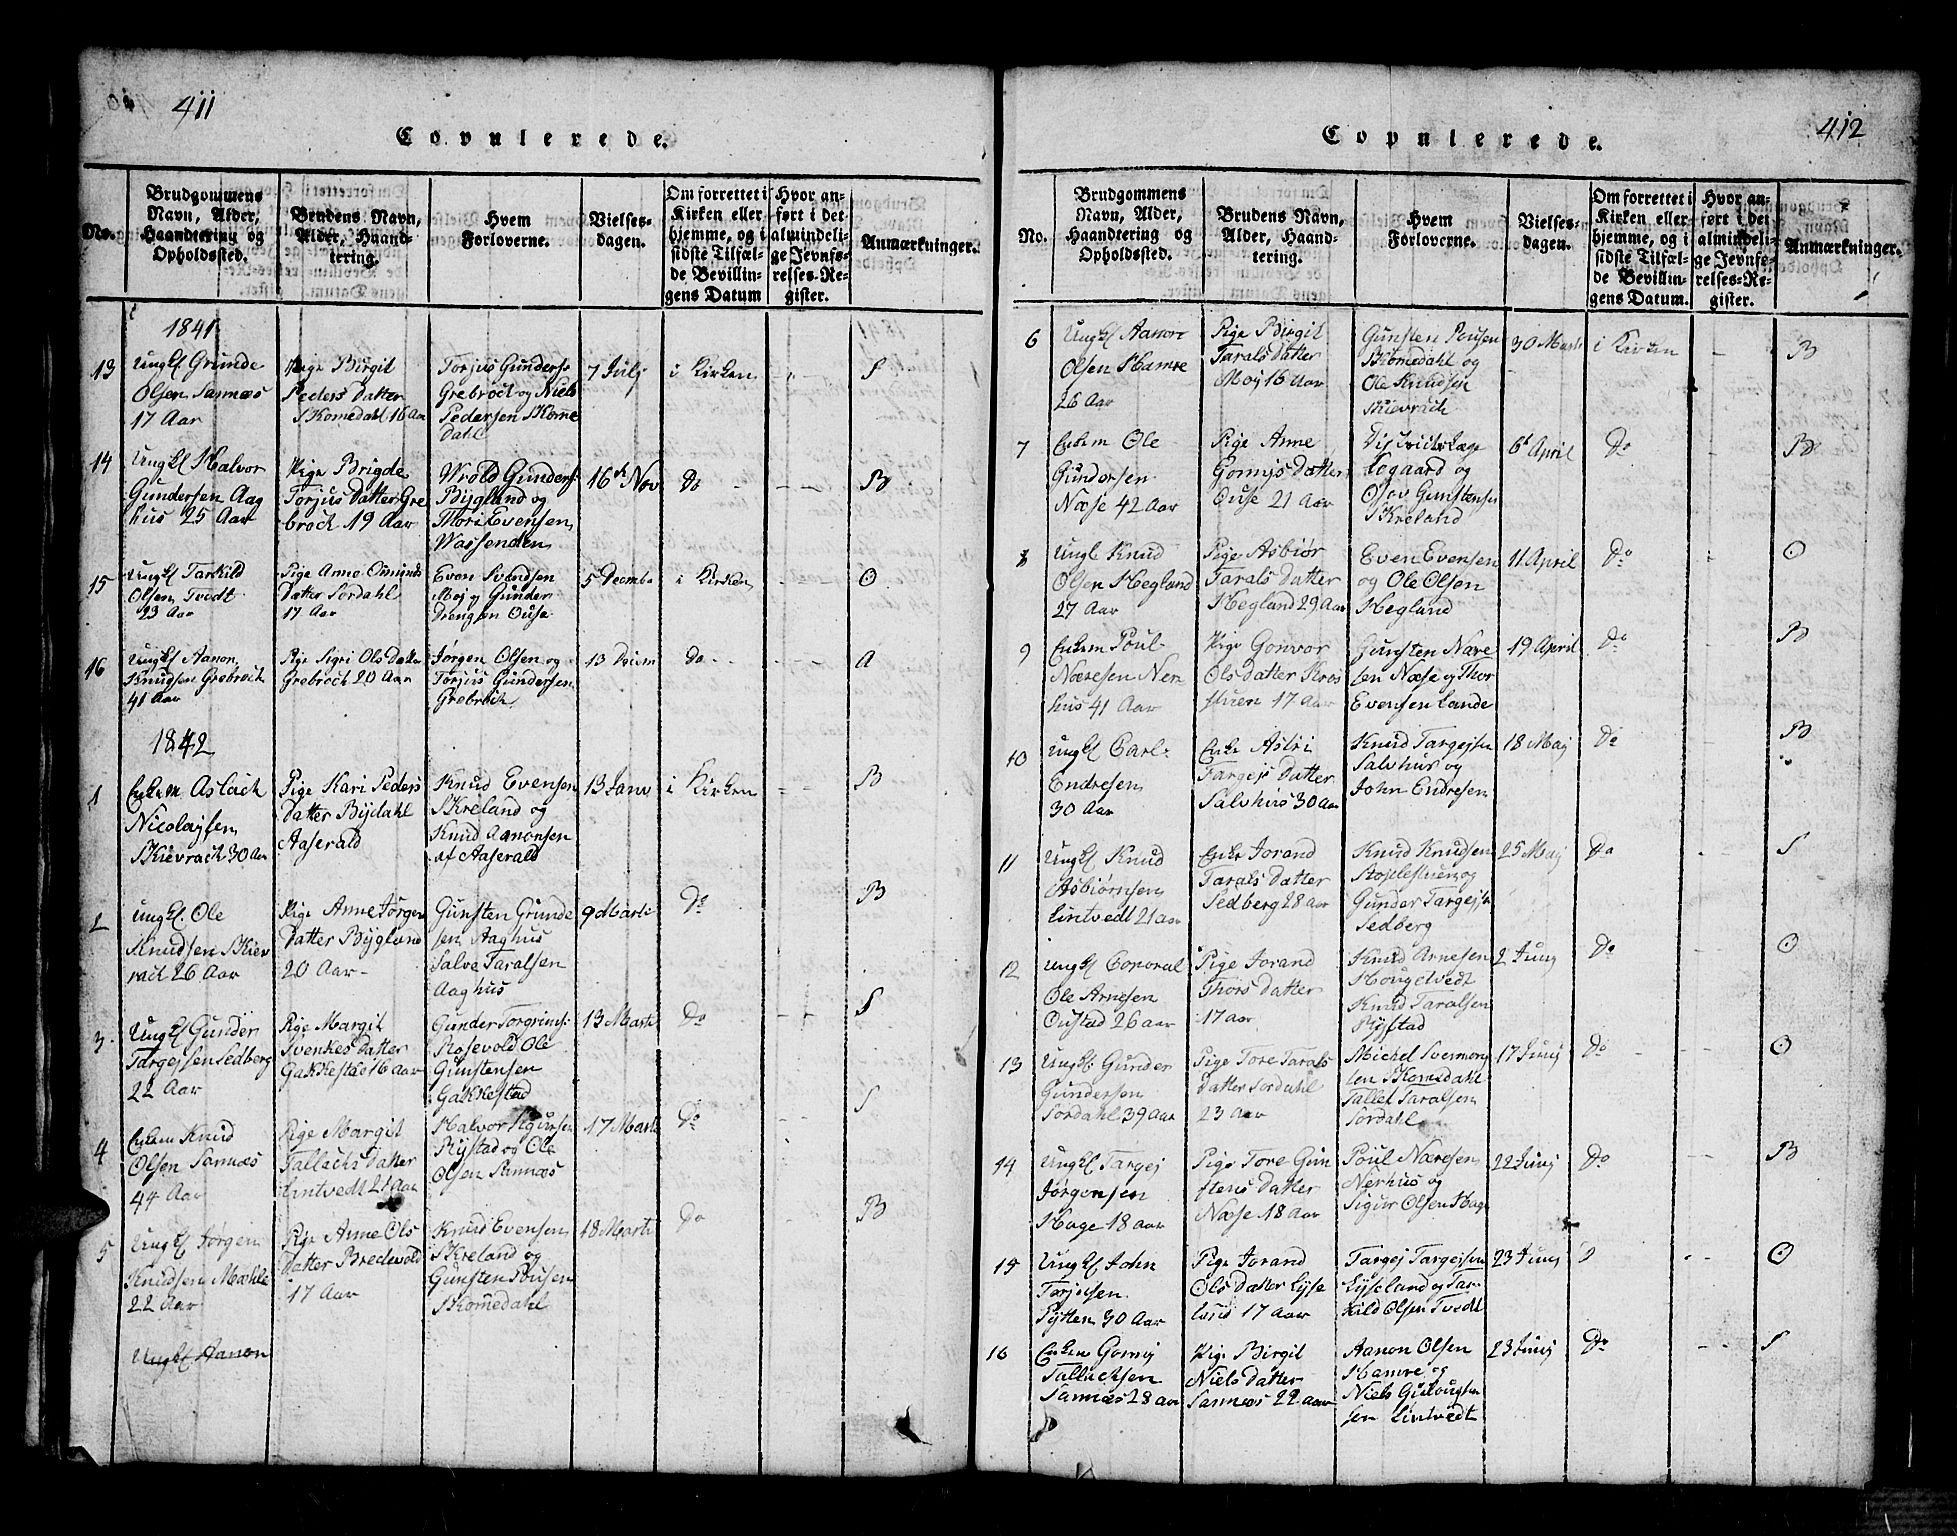 411
Copulerede.
No.
Brudgommens
Navn, Alder,
Haandtering og
Opholdssted.
Brudens Navn,
Alder, Haand-
tering.
Hvem
Forloverne.
Vielses-
dagen.
Om forrettet i
Kirken eller
hjemme, og i
sidste Tilfæl-
de Bevillin-
gens Datum
Hvor an-
ført i det
almindeli-
ge Jevnfø-
relses-Re-
gister.
Anmærkninger.
1841
13
Ungkl Grunde
Olsen Sannæs
17 Aar
Pige Birgit
Peders Datter
SKomedahl 16 Aar
Torjus Gunders.
Grebrock og Niels
Pedersen SKome
Dahl
7 Julj
i Kirken
S
14
Ungkl Halvor
Gundersen Aag
hus 25 Aar
Pige Brigde
Torjus Datter Gre
brock 19 Aar
Wrold Gunders.
Bygland og
Thor Evensen
Wassenden
16de Nov
Do
B
15
Ungkl Tarkild
Olsen Tvedt
23 Aar
Pige Anne Osmunds
Datter Sordahl
17 Aar
Even Svendsen
Moj og Gunder
Drengsen Ouse
5 Decmbr
i Kirken
O
16
Ungkl Aanon
Knudsen Grebrock
41 Aar
Pige Sigri Ols Datter
Grebrock 20 Aar
Jørgen Olsen og
Torjus Gundersen
Grebrock
13 Decem
Do
A
1842
1
Enkem Aslach
Nicolajsen
SKievrach 30 Aar
Pige Kari Peders
Datter Bjydahl
Aaserald
Knud Evensen
SKreland og
Knud Aanonsen
af Aaserald
13 Janv
i Kirken
B
2
Ungkl. Ole
Knudsen SKiev
rach 26 Aar
Pige Anne Jørgen
Datter Bygland
20 Aar
Gunsten Grunde
sen Aaghus
Salve Taralsen
Aaghus
9 Marti
Do
B
3.
Ungkl Gunder
Targejsen Sedberg
22 Aar
Pige Margit
Svenkes Datter
Gakkestad 16 Aar
Gunder Torgrims:
Rosevold Ole
Gunstensen
Gakkestad
13 Marti
Do
S
4
Enkem Knud
Olsen Sannæs
44 Aar
Pige Margit
Tallachs Datter
Lintvedt 21 Aar
Halvor Sigursen
Rystad og Ole
Olsen Sannæs
17 Marti
Do
S
5
Ungkl Jørgen
Knudsen Mæhle
22 Aar
Pige Anne Ols
Datter Bredevold
17 Aar
Knud Evensen
SKreland og
Gunsten Pousen
SKomedahl
18 Marti
Do
B
Ungkl Aanon
412
Copulerede.
No.
Brudgommens
Navn, Alder,
Haandtering og
Opholdssted.
Brudens Navn,
Alder, Haand-
tering.
Hvem
Forloverne.
Vielses-
dagen.
Om forrettet i
Kirken eller
hjemme, og i
sidste Tilfæl-
de Bevillin-
gens Datum.
Hvor an-
ført i det
almindeli-
ge Jevnfø-
relses-Re-
gister.
Anmærkninger.
6
Ungkl Aanon
Olsen Hamre
26 Aar
Pige Birgit
Tarals Datter
Moj 16 Aar
Gunsten Pousen
SKomedahl og
Ole Knudsen
SKievrach
30 Marti
i Kirken
B
7
Enkem Ole
Gundersen
Næse 42 Aar
Pige Anne
Gomes Datter
Ouse 21 Aar
Distrikts Læge
og
Osov Gunstensen
SKreland
6te April
Do
B
8
Ungl Knud
Olsen Hegland
27 Aar
Pige Asbiør
Tarals Datter
Hegland 29 Aar
Even Evensen
og Ole Olsen
Hegland
11 April
Do
O
9
Enkem Poul
Næresen Ner
hus 41 Aar
Pige Gonvor
Ols Datter Kros
stuen 17 Aar
Gunsten Nære
sen Næse og Thor
Evensen Lande
19 April
Do
B
10
Ungkl Carl
Endresen
30 Aar
Enke Aslri
Targejs Datter
Salvhus 30 Aar
Knud Targejsen
Salvhus og
John Endresen
18 Maj
Do
B
11
Ungkl Knud
Asbiørnsen
Lintvedt 21 Aar
Enke Jorand
Tarals Datter
Sedberg 28 Aar
Knud Knudsen
Stojelstuen og
Gunder Targejsen
Sedberg
25 Maj
Do
S
12
Ungkl Coporal
Ole Arnesen
Oustad 26 aar
Pige Jorand
Thors Datter
17 aar
Knud Arnesen
Hougetvedt
Knud Taralsen
Rystad
2 Junj
Do
O
13
Ungkl. Gunder
Gundersen
Sordahl 39 Aar
Pige Tore Tarals
Datter Sordahl
23 Aar
Michel Svermong
sen SKomedahl
Tallef Taralsen
Sordahl
17 Junj
Do
O
14
Ungkl Targej
Jørgensen
Hage 18 aar
Pige Tore Gun
stens Datter
Næse 18 Aar
Poul Næresen
Nerhus og
Sigur Olsen Hage
22 Junj
Do
B
15
Ungkl John
Torjusen
Pytten 30 Aar
Pige Jorand
Ols Datter Lyse
land 17 aar
Targej Targejsen
Lyseland og Tar-
kild Olsen Tvedt
23 Junj
D
O
16
Enkem Gomij
Tallachsen
Sannæs 28 Aar
Pige Birgit
Niels Datter
Sannæs 22 Aar
Aanon Olsen
Hamre og
Niels Gulougsen
sen Lintvedt
23 Junj
Do
S